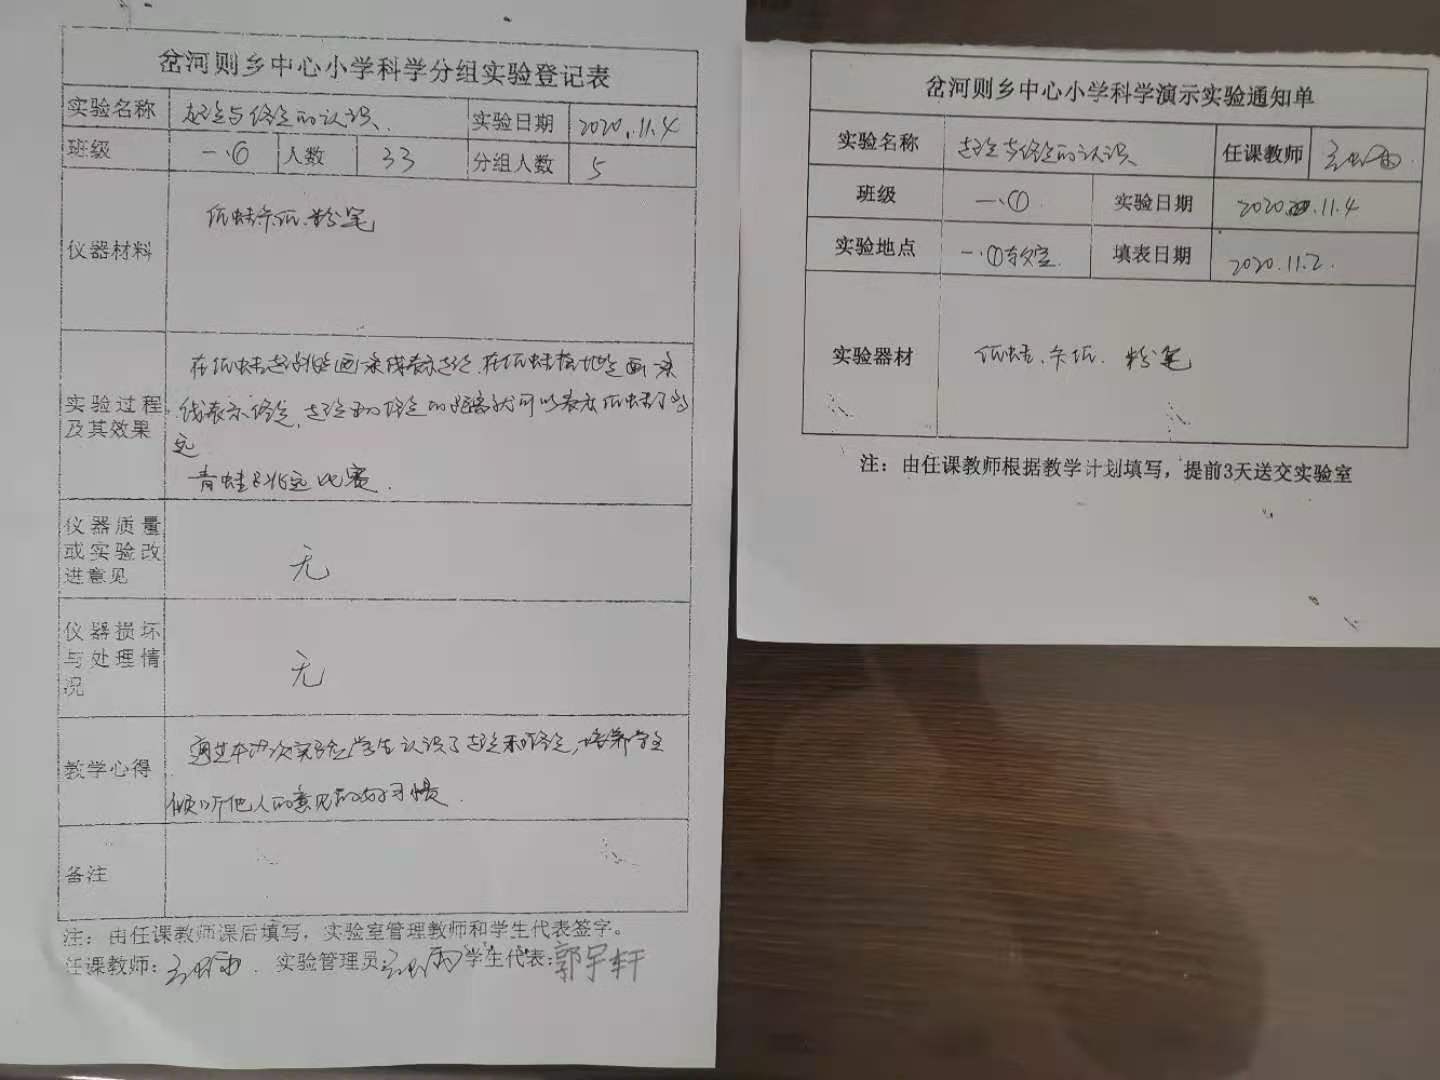 岔河则乡中心小学科学分组实验登记表
实验名称 起点与终点的认识 实验日期 2020.11.4
班级 一.① 人数 33 分组人数 5
仪器材料 纸蛙 卡纸 粉笔
实验过程及其效果
在纸蛙起跳处画一条线表示起点,在纸蛙落地处画一条
线表示终点,起点到终点的距离就可以表示纸蛙跳了多
远
青蛙跳远比赛.
仪器质量或实验改进意见 无
仪器损坏与处理情况 无
教学心得
通过本次实验,学生认识了起点和终点,培养学生
倾听他人的意见的好习惯.
备注
注：由任课教师课后填写，实验室管理教师和学生代表签字。
任课教师： 实验管理员: 学生代表:郭宇轩
岔河则乡中心小学科学演示实验通知单
实验名称 起点与终点的认识 任课教师
班级 一.① 实验日期 2020.11.4
实验地点 一.①教室 填表日期 2020.11.2.
实验器材 纸蛙.卡纸.粉笔
注：由任课教师根据教学计划填写，提前3天送交实验室